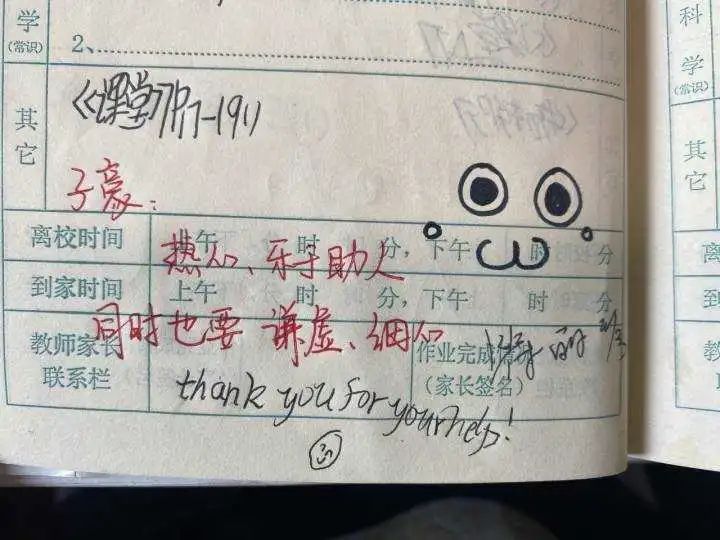 学
(常识)
2、
其它
《课堂》P17-19(1)
子豪：
热心、乐于助人
离校时间 上午 时 分，下午 时 分
到家时间 上午 时 分，下午 时 分
同时也要 谦虚、细心
教师家长联系栏
作业完成情况
(家长签名)
thank you for your help!
科
学
(常识)
其
它
离
到
教